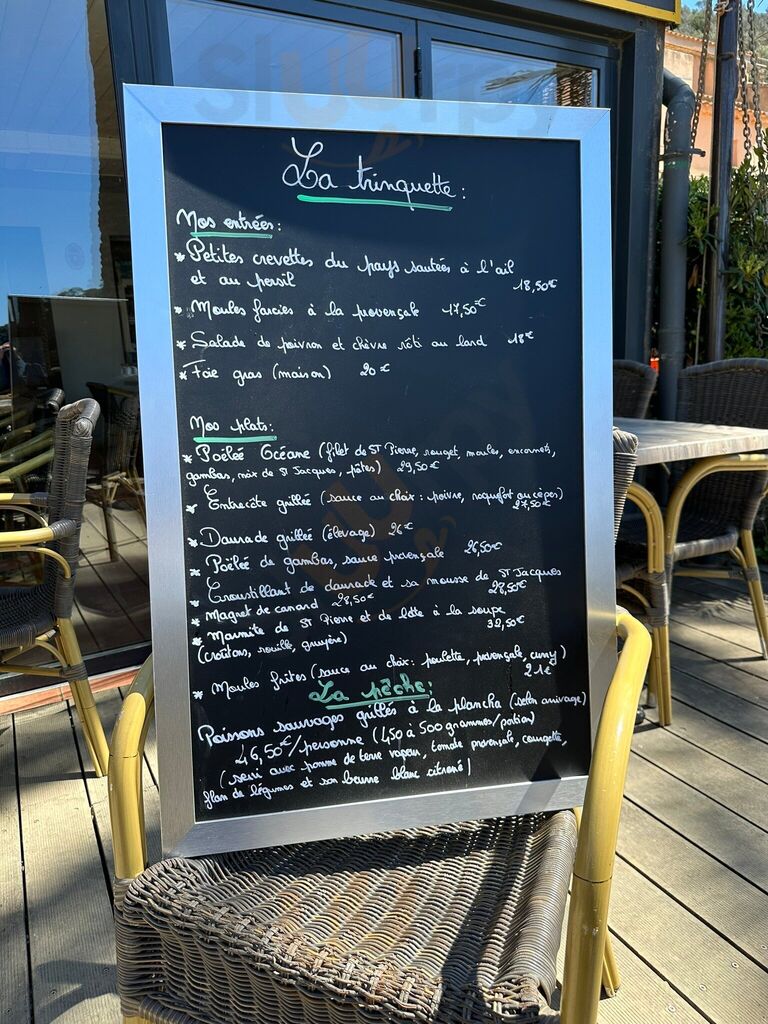 La trinquette:
Nos entrées:
* Petites crevettes du pays sautées à l'ail
et au persil 18,50€
* Moules farcies à la provençale 17,50€
* Salade de poivron et chèvre rôti au lard 18€
* Foie gras (maison) 20€
Nos plats:
* Poêleé Océane (filet de ST Pierre, rouget, moules, encornets,
gambas, noix de ST Jacques, pâtes) 29,50€
* Entrecôte grillée (sauce au choix: poivre, roquefort ou cèpes)
27,50€
* Daurade grilleé (élevage) 26€
* Poêlée de gambas, sauce provençale 26,50€
* Croustillant de daurade et sa mousse de ST Jacques
28,50€
* Magret de canard 28,50€
* Marmite de ST Pierre et de lotte à la soupe
(croûtons, rouille, gruyère) 32,50€
* Moules frites (sauce au choix: poulette, provençale, curry)
21€
La pêche:
Poissons sauvages grillés à la plancha (selon arrivage)
46,50€/personne (450 à 500 grammes/portion)
(servi avec pomme de terre vapeur, tomate provençale, courgette,
flan de légumes et son beurre blanc citronné)